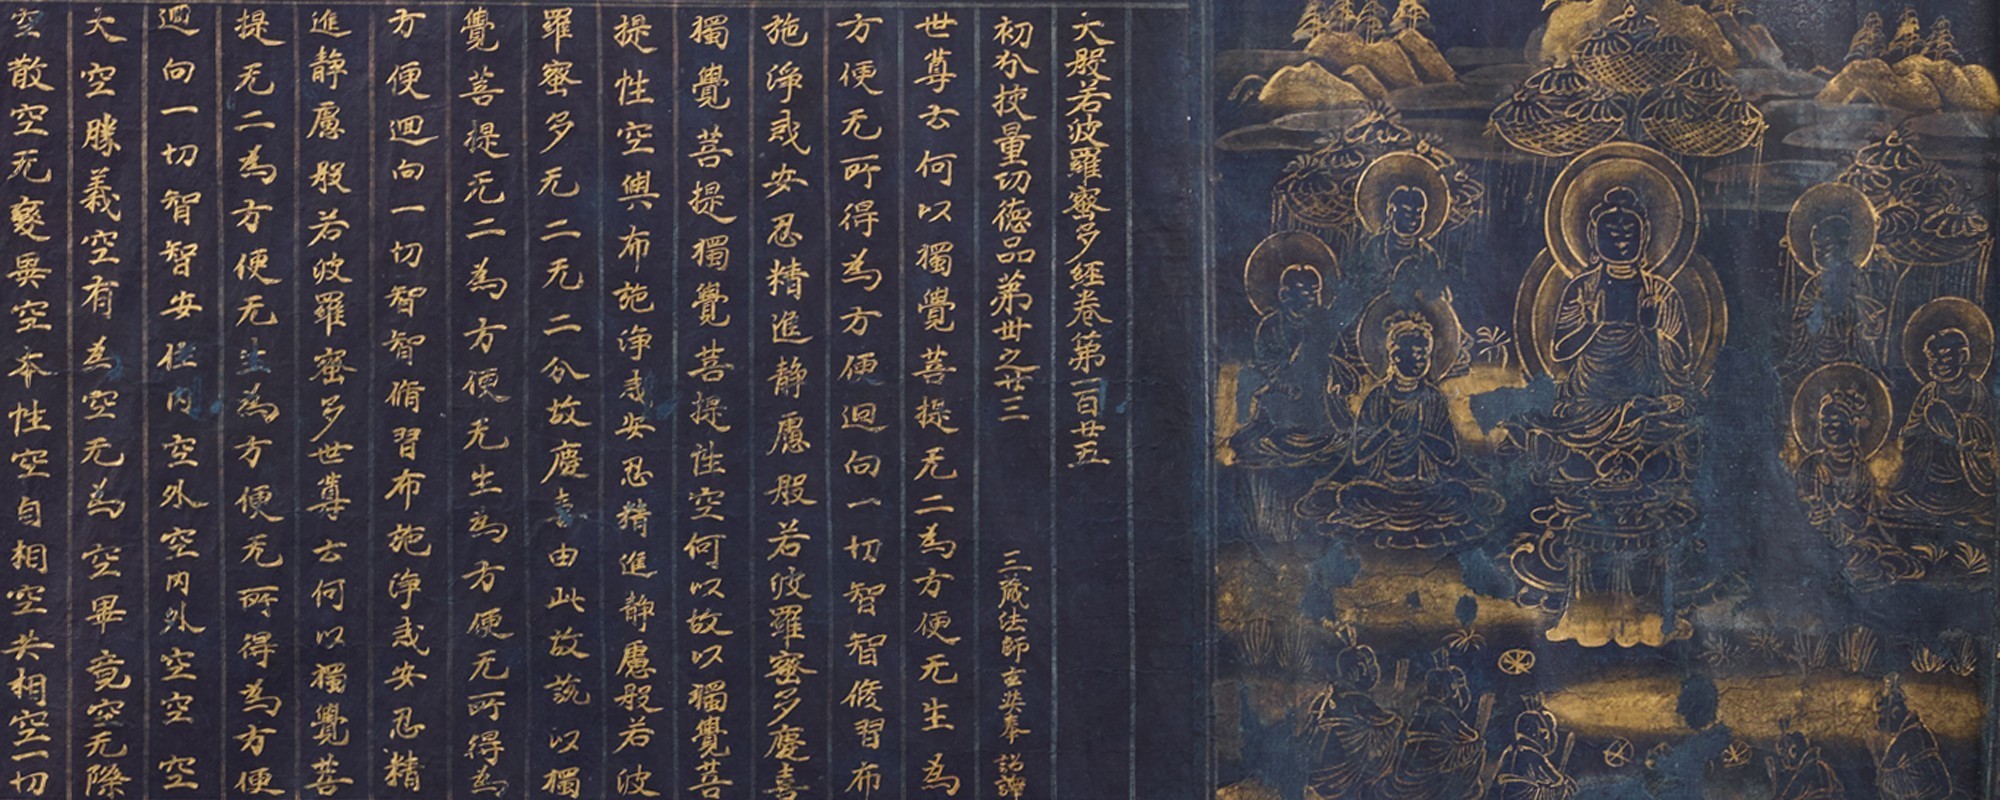 大般若波羅蜜多經卷第一百廿五
初分挍量功德品第卅之廿三 三藏法師玄奘奉 詔譯
世尊云何以獨覺菩提无二為方便无生為
方便无所得為方便迴向一切智智脩習布
施淨戒安忍精進静慮般若波羅蜜多慶喜
獨覺菩提獨覺菩提性空何以故以獨覺菩
提性空與布施淨戒安忍精進静慮般若波
羅蜜多无二无二分故慶喜由此故說以獨
覺菩提无二為方便无生為方便无所得為
方便迴向一切智智脩習布施淨戒安忍精
進静慮般若波羅蜜多世尊云何以獨覺菩
提无二為方便无生為方便无所得為方便
迴向一切智智安住内空外空内外空空空
大空勝義空有為空无為空畢竟空无際
空散空无變異空本性空自相空共相空一切